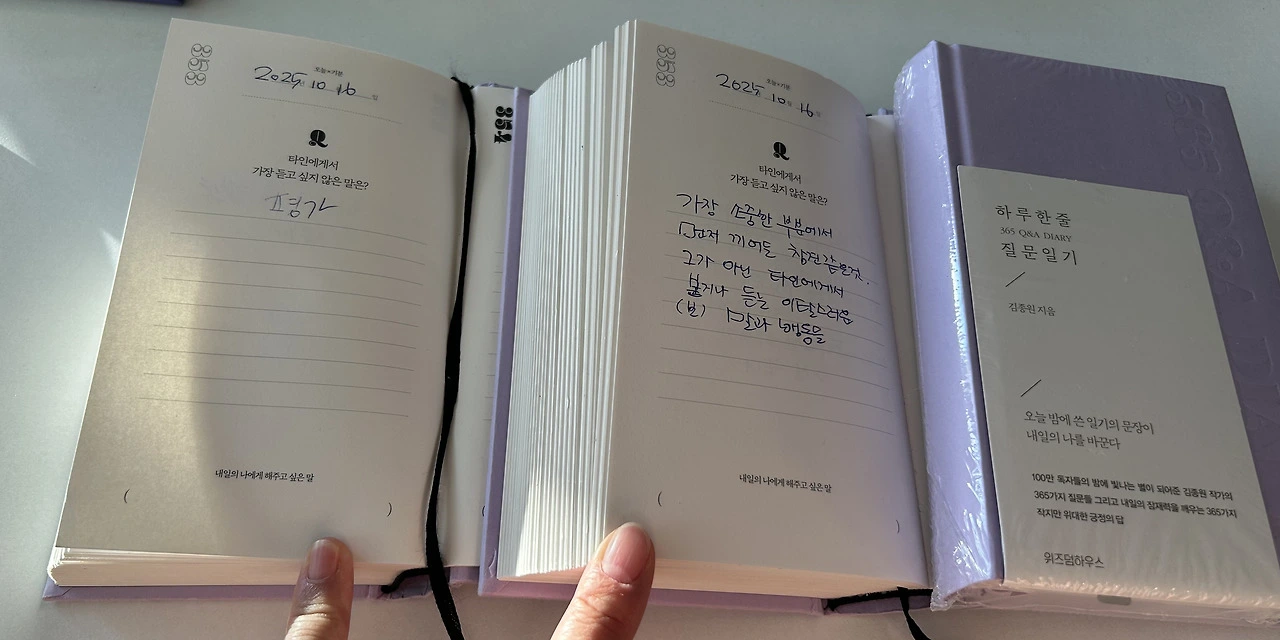 오늘×기분
2025년 10월 16일
Q
타인에게서
가장 듣고 싶지 않은 말은?
평가
내일의 나에게 해주고 싶은 말
( )
354
오늘×기분
2025년 10월 16일
Q
타인에게서
가장 듣고 싶지 않은 말은?
가장 소중한 부분에서
먼저 끼어든 참견같은것.
그가 아닌 타인에게서
붙지나 듣는 이탈스러운
말과 행동들
내일의 나에게 해주고 싶은 말
( )
하루 한 줄
365 Q&A DIARY
질문 일기
김종원 지음
오늘 밤에 쓴 일기의 문장이
내일의 나를 바꾼다
100만 독자들의 밤에 빛나는 별이 되어준 김종원 작가의
365가지 질문들 그리고 내일의 잠재력을 깨우는 365가지
작지만 위대한 긍정의 답
위즈덤하우스